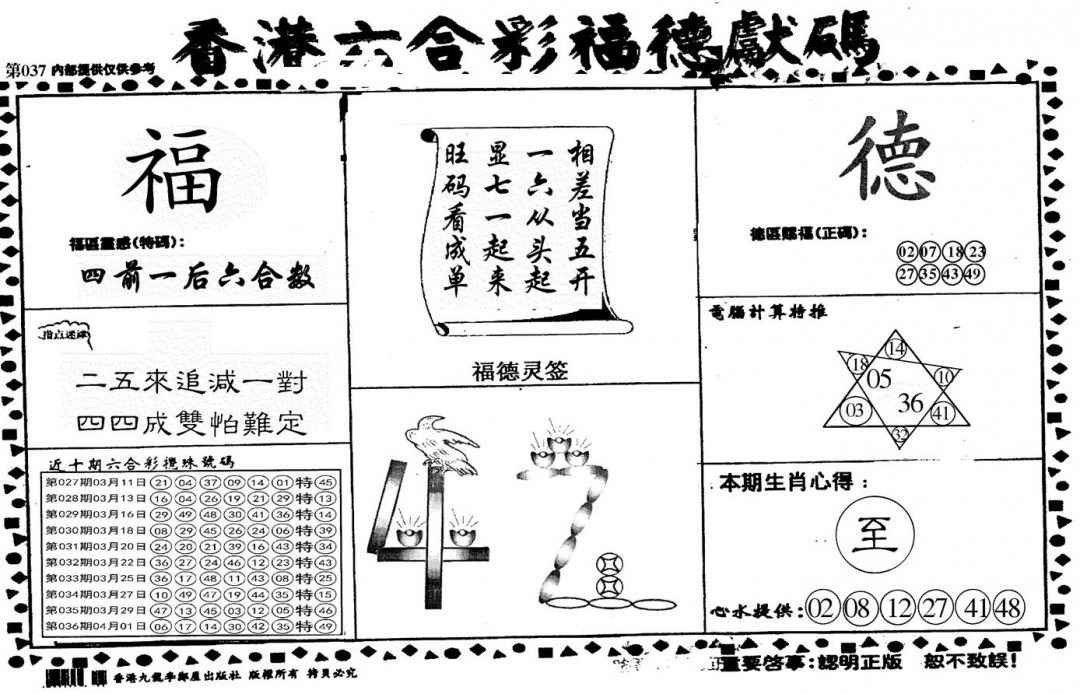 香港六合彩福德獻碼
第037 內部提供仅供参考
福
福區靈感(特碼):
四前一后六合数
指点迷津
二五來追減一對
四四成雙怕難定
近十期六合彩攪珠號碼
第027期03月11日 21 04 37 09 14 01 特 45
第028期03月13日 16 04 26 19 21 29 特 13
第029期03月16日 29 49 48 30 41 36 特 14
第030期03月18日 08 29 45 26 24 06 特 39
第031期03月20日 24 20 21 39 16 43 特 34
第032期03月22日 36 27 24 46 12 23 特 43
第033期03月25日 36 17 48 11 43 08 特 25
第034期03月27日 10 49 47 19 44 35 特 15
第035期03月29日 47 13 45 03 12 05 特 46
第036期04月01日 06 17 14 30 42 35 特 49
相差当五开
一六从头起
显七一起来
旺码看成单
福德灵签
德
德區賜福(正碼):
02 07 18 23
27 35 43 49
電腦計算特推
14
18 05 10
03 36 41
32
本期生肖心得:
至
心水提供: 02 08 12 27 41 48
香港九龍李鄭屋出版社 版權所有 拷貝必究
重要啓事:認明正版 恕不致誤!